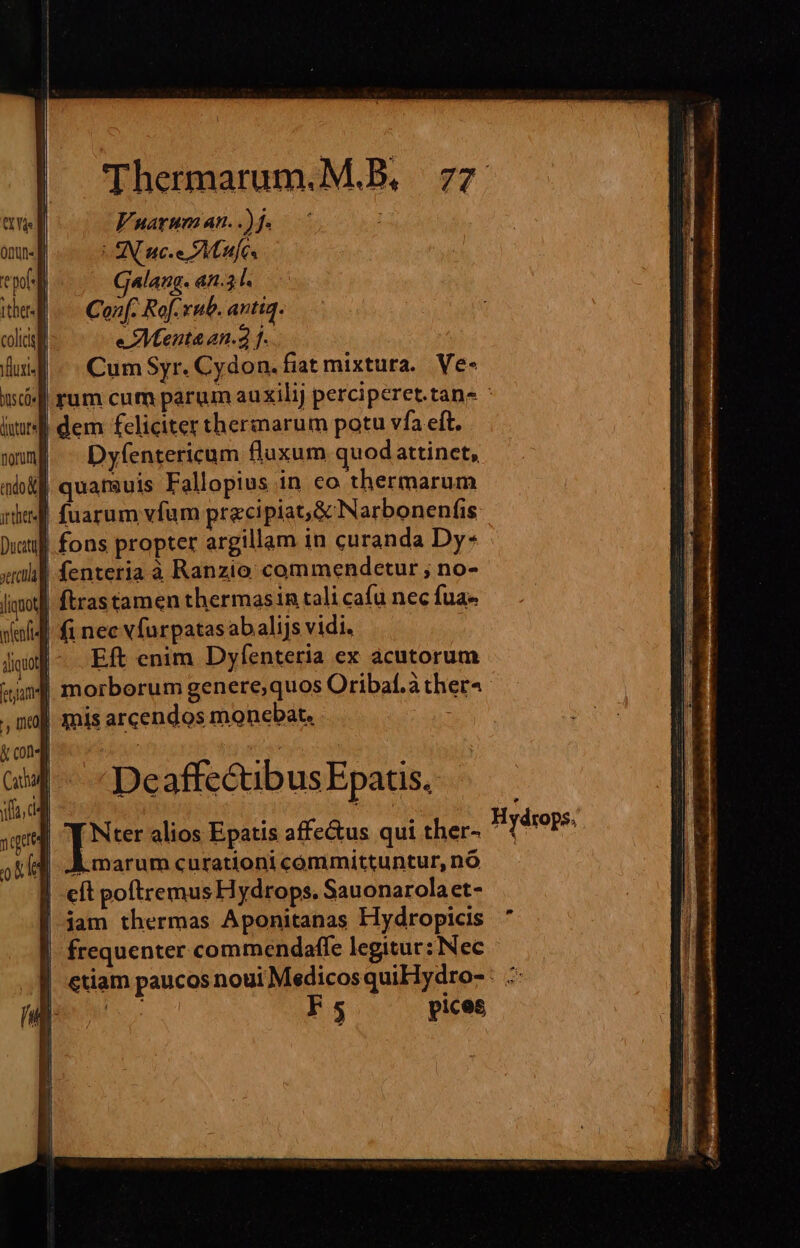 Thermarum. M.B. 77
Vuarum an. .)j.
Nuc. Muſc.
Galang. an. ʒl.
Conſ. Roſ. rub. antiq.
Menta an. ʒ j.
Cum Syr. Cydon. fiat mixtura. Ve-
rum cum parum auxilij perciperet. tan-
dem feliciter thermarum potu vſa eſt.
Dyſentericum fluxum quod attinet,
quamuis Fallopius in eo thermarum
ſuarum vſum præcipiat, & Narbonenſis
fons propter argillam in curanda Dy-
ſenteria à Ranzio commendetur ; no-
ſtras tamen thermas in tali caſu nec ſua-
ſi nec vſurpatas ab alijs vidi.
Eſt enim Dyſenteria ex acutorum
morborum genere, quos Oribaſ. à ther-
mis arcendos monebat.
De affectibus Epatis.
INter alios Epatis affectus qui ther-
marum curationi cōmittuntur, nō
eſt poſtremus Hydrops. Sauonarola et-
iam thermas Aponitanas Hydropicis
frequenter commendaſſe legitur: Nec
etiam paucos noui Medicos qui Hydro-
F 5 pices
Hydrops.